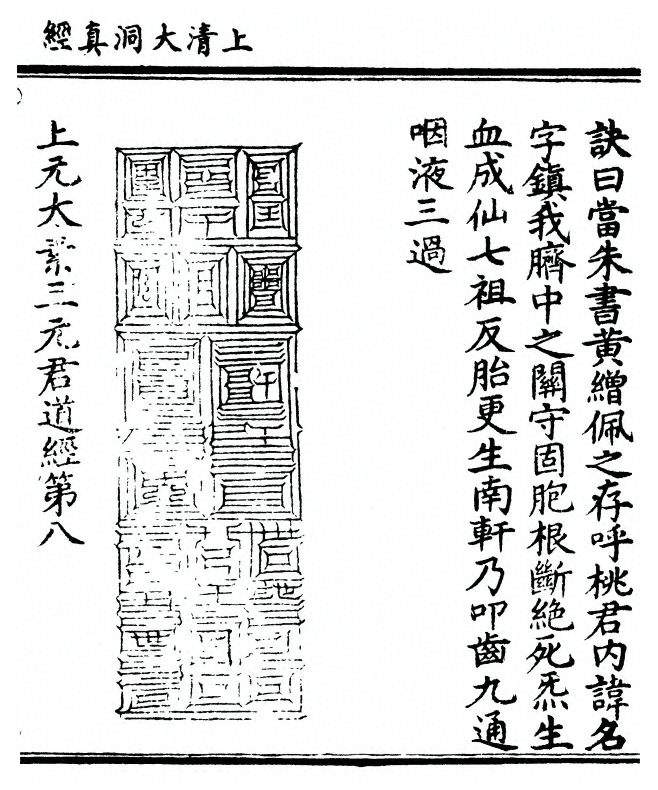 上清大洞真經
訣曰當朱書黃繒佩之存呼桃君內諱名
字鎮我臍中之關守固胞根斷絶死炁生
血成仙七祖反胎更生南軒乃叩齒九通
咽液三過
上元太素三元君道經第八